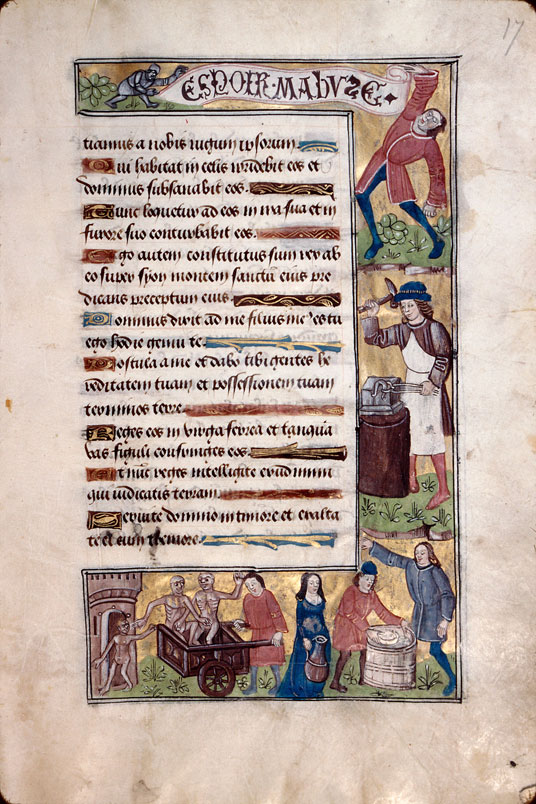 17
ESPOIR·MABUZE·
ticiamus a nobis iugum ipsorum.
Qui habitat in celis irridebit eos et
dominus subsanabit eos.
Tunc loquetur ad eos in ira sua et in
furore suo conturbabit eos.
Ego autem constitutus sum rex ab
eo super syon montem sanctū eius pre
dicans preceptum eius.
Dominus dixit ad me filius me9 es tu
ego hodie genui te.
Postula a me et dabo tibi gentes he
reditatem tuam et possessionem tuam
terminos terre.
Reges eos in virga ferrea et tanquā
vas figuli confringes eos.
Et nūc reges intelligite erudimini
qui iudicatis terram.
Servite domino in timore et exulta
te ei cum tremore.